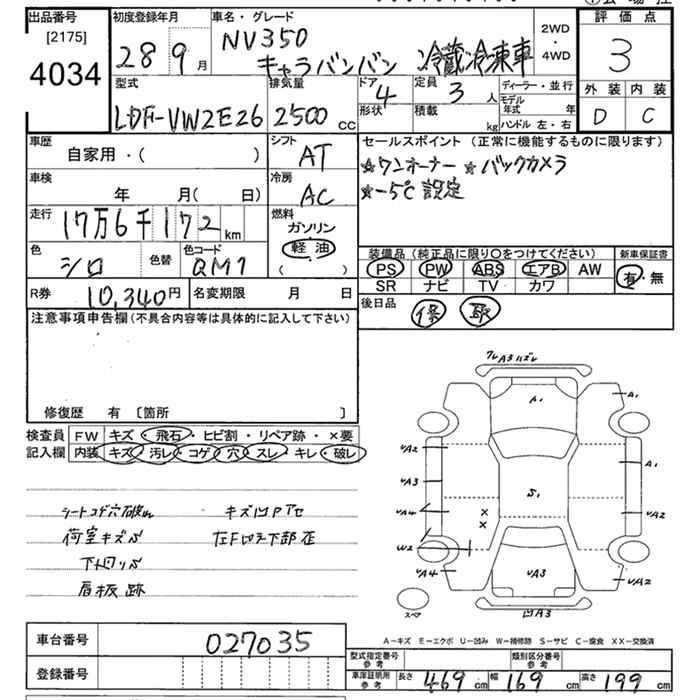 出品番号
[2175]
4034
初度登録年月
28 9月
車名・グレード
NV350
キャラバンバン 冷蔵冷凍車
2WD
・
4WD
評価点
3
外装 内装
D C
型式
LDF-VW2E26
排気量
2500 CC
ドア
4
形状
定員
3 人
積載
kg
ディーラー・並行
モデル年式 年
ハンドル 左・右
車歴
自家用・( )
シフト
AT
車検
年 月( 日)
冷房
AC
走行
17万6千172 km
燃料
ガソリン
軽油
( )
色
シロ
色替
色コード
QM1
セールスポイント (正常に機能するものに限ります)
☆ワンオーナー ☆バックカメラ
☆-5℃設定
装備品 (純正品に限り○をつけてください)
PS PW ABS エアB AW
SR ナビ TV カワ
新車保証書
有・無
R券
10,340円
名変期限 月 日
後日品
保 取
注意事項申告欄(不具合内容等は具体的に記入して下さい)
修復歴 有 〔箇所 〕
検査員
記入欄
FW キズ・飛石・ヒビ割・リペア跡・×要
内装 キズ・汚レ・コゲ・穴・スレ・キレ・破レ
シートコゲ穴破れ
荷室キズ凹
下回りサビ
看板跡
キズ凹Pアセ
左F凹ミ下部歪
A1
A1
A1
S1
VA2
VA3
VA4
W2
VA4
VA2
VA2
VA3
凹A3
スペア
A-キズ E-エクボ U-凹み W-補修跡 S-サビ C-腐食 XX-交換済
車台番号
027035
登録番号
型式指定番号
参考
類別区分番号
参考
車庫証明用
参考
長さ 469 cm 幅 169 cm 高さ 199 cm